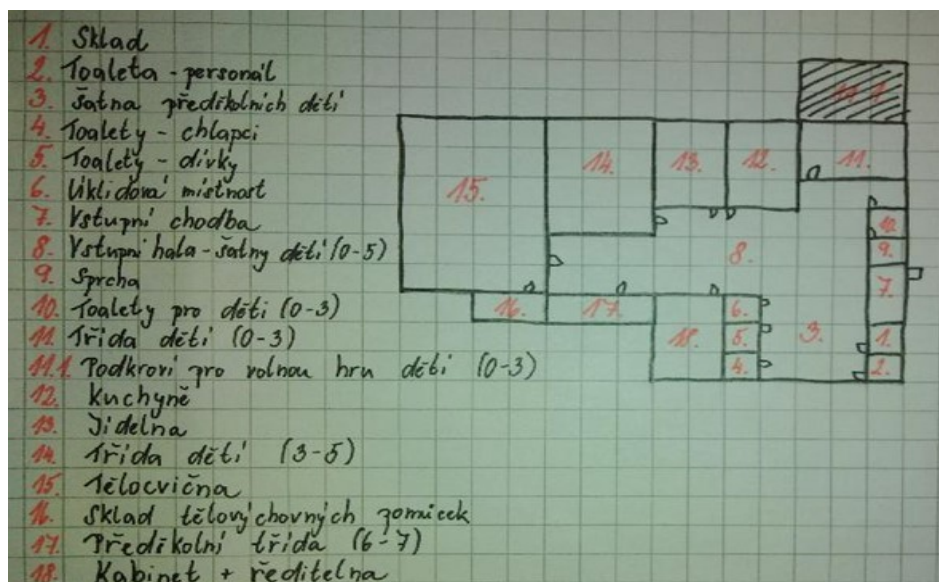 1. Sklad
2. Toaleta - personál
3. Šatna předškolních dětí
4. Toalety - chlapci
5. Toalety - dívky
6. Úklidová místnost
7. Vstupní chodba
8. Vstupní hala - šatny dětí (0-5)
9. Sprcha
10. Toalety pro děti (0-3)
11. Třída dětí (0-3)
11.1. Podkroví pro volnou hru dětí (0-3)
12. Kuchyně
13. Jídelna
14. Třída dětí (3-5)
15. Tělocvična
16. Sklad tělovýchovných pomůcek
17. Předškolní třída (6-7)
18. Kabinet + ředitelna
11.1.
15.
14.
13.
12.
11.
10.
9.
8.
7.
16.
17.
18.
6.
5.
4.
3.
1.
2.